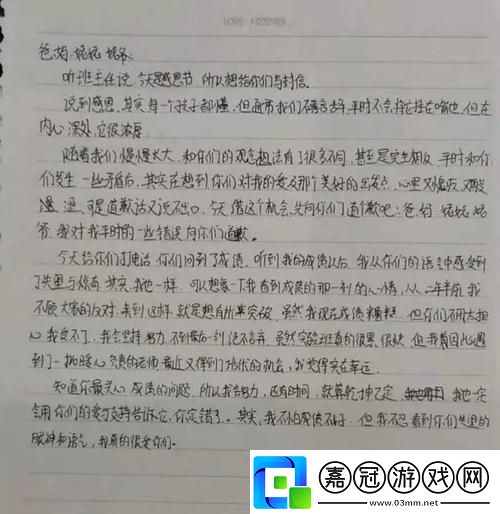 LOVE FOREVER..
爸.妈.妮妮.妮爷:
听班主任说,今天是感恩节,所以想给你们写封信。
说到感恩,其实每一个孩子都懂,但通常我们不善言辞,平时不会将它挂在嘴边,但在
内心深处,它很浓厚。
随着我们慢慢长大,和你们的观念想法有了很多不同,甚至是完全相反,平时和你
们发生一些矛盾后,其实在想到你们对我的爱及那个美好的出发点,心里又愧疚,又
可是道歉话又说不出口,今天借这个机会,先向你们道个歉吧:爸.妈.妮妮.妮
爷,我对我平时的一些错误向你们道歉。
今天给你们打电话,你们问到了成绩,听到我的成绩以后,我从你们的语气中感受到
了失望与惊奇,其实,我也一样,可以想象一下我看到成绩的那一刻的心情,从二年前,我
不顾大家的反对,来到这样,就是想有所突破,虽然我现在成绩糟糕,但你们不用太担
心,我受不了,我会坚持努力,不到最后一刻绝不言弃,虽然实验班真的很累,很快,但我有因此遇
到了一批暖心负责的老师,最近又得到了培优的机会,我觉得实在幸运。
知道你最关心成绩的问题,所以我会努力,还有时间,就算乾坤已定,我也一定
会用你们的爱与支持告诉它,你定错了。其实,我不怕成绩不好,但我不忍看到你们失望的
眼神和语气,我真的很爱你们。
嘉冠游戏网
www.03mm.net